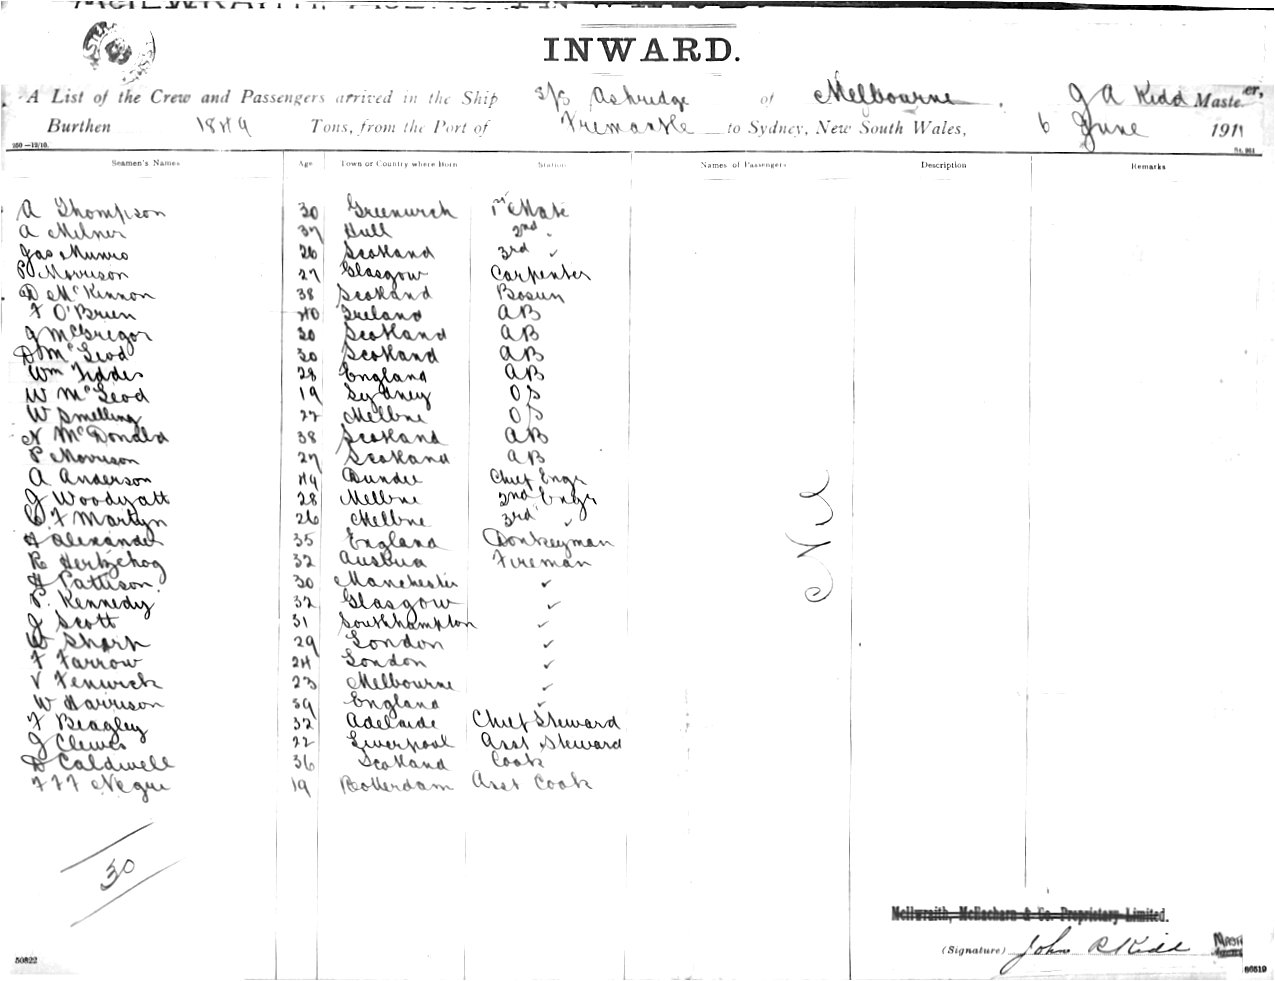 INWARD.
A List of the Crew and Passengers arrived in the Ship S/S Ashridge of Melbourne, J A Kidd Master,
Burthen 1849 Tons, from the Port of Fremantle to Sydney, New South Wales, 6 June 1911
Seamen's Names Age Town or Country where Born Station Names of Passengers Description Remarks
A Thompson 30 Greenwich 1st Mate
A Milner 37 Hull 2nd "
Jas Munro 26 Scotland 3rd "
P Morrison 27 Glasgow Carpenter
D McKinnon 38 Scotland Bosun
F O'Brien 40 Ireland AB
J McGregor 30 Scotland AB
D McLeod 30 Scotland AB
Wm Fiddes 28 England AB
W McLeod 19 Sydney OS
W Smelling 22 Melbne OS
N McDonald 38 Scotland AB
P Morrison 27 Scotland AB
A Anderson 49 Dundee Chief Engr
J Woodyatt 28 Melbne 2nd Engr
C F Martyn 26 Melbne 3rd "
H Alexander 35 England Donkeyman
R Hertzhog 32 Austria Fireman
H Pattison 30 Manchester "
P. Kennedy 32 Glasgow "
J Scott 31 Southhampton "
W Sharp 29 London "
F Farrow 24 London "
V Fenwick 23 Melbourne "
W Harrison 39 England "
F Beagley 32 Adelaide Chief Steward
J Clewes 22 Liverpool Asst Steward
D Caldwell 36 Scotland Cook
F F F Negri 19 Rotterdam Asst Cook
Nil
30
McIlwraith, McEacharn & Co. Proprietary Limited.
(Signature) John R Kidd
50822
86519